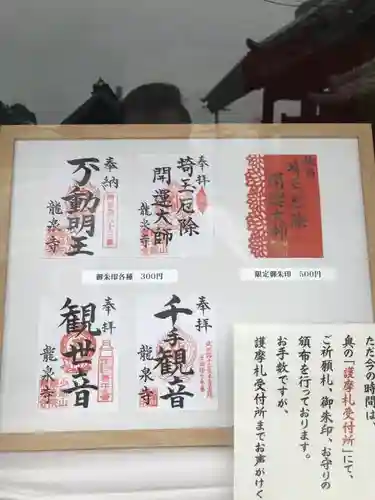 奉納
不動明王
龍泉寺
奉拝
埼玉厄除
開運大師
龍泉寺
埼玉厄除
開運大師
御朱印各種 300円
限定御朱印 500円
奉拝
観世音
龍泉寺
奉拝
千手観音
龍泉寺
ただ今の時間は、
奥の「護摩札受付所」にて、
ご祈願札、御朱印、お守りの
頒布を行っております。
お手数ですが、
護摩札受付所までお声がけく